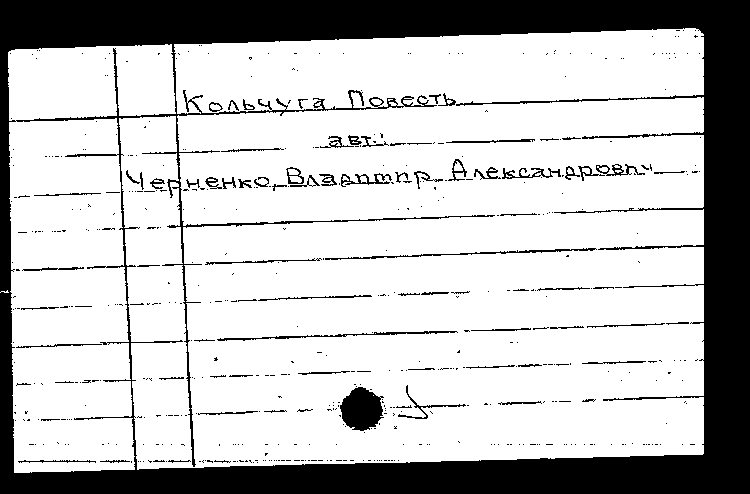 Кольчуга. Повесть
авт.:
Черненко, Владимир Александрович